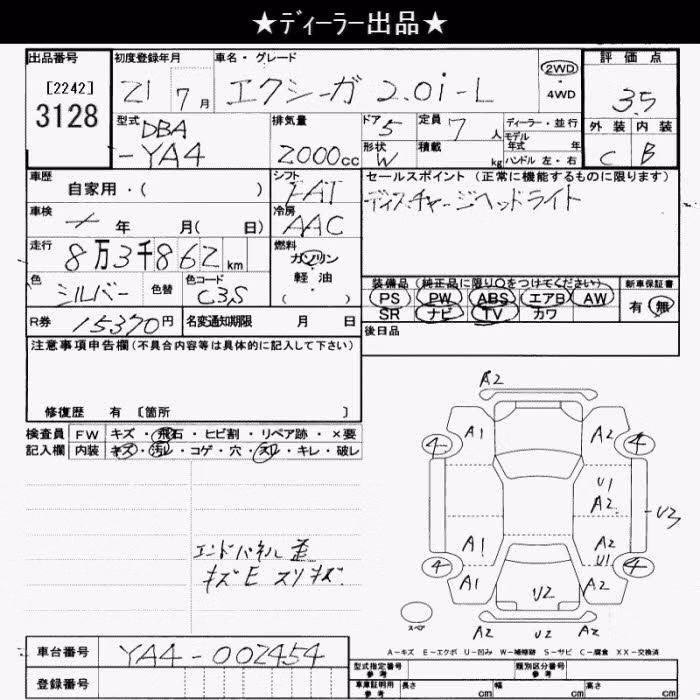 ★ディーラー出品★
出品番号 初度登録年月 車名・グレード 評価点
[2242] 21 7月 エクシーガ 2.0i-L 2WD ・ 4WD 3.5
3128
型式 排気量 ドア 定員 ディーラー・並行 外装 内装
DBA 5 7人 モデル年式 年
-YA4 2000cc 形状 W 積載 kg ハンドル 左・右 C B
車歴 シフト セールスポイント (正常に機能するものに限ります)
自家用・( ) FAT ディスチャージヘッドライト
車検 年 月( 日) 冷房 AAC
走行 8万3千862km 燃料 ガソリン
軽・油
( )
色 シルバー 色替 色コード C3S
装備品 (純正品に限り〇をつけてください) 新車保証書
PS PW ABS エアB AW 有 無
SR ナビ TV カワ
R券 15370円 名変通知期限 月 日 後日品
注意事項申告欄(不具合内容等は具体的に記入して下さい)
修復歴 有 [箇所 ]
検査員 FW キズ・飛石・ヒビ割・リペア跡・×要
記入欄 内装 キズ・汚レ・コゲ・穴・スレ・キレ・破レ
A2
A1 A2
4 4
U1
A2
U3
A1 A2
U1
4 4
A1 A2
U2
A2 U2 A2
スペア
エンドパネル歪
キズE スリキズ
A-キズ E-エクボ U-凹み W-補修跡 S-サビ C-腐食 XX-交換済
車台番号 YA4-002454
登録番号
型式指定番号 参考 類別区分番号 参考
車庫証明用 参考 長さ cm 幅 cm 高さ cm